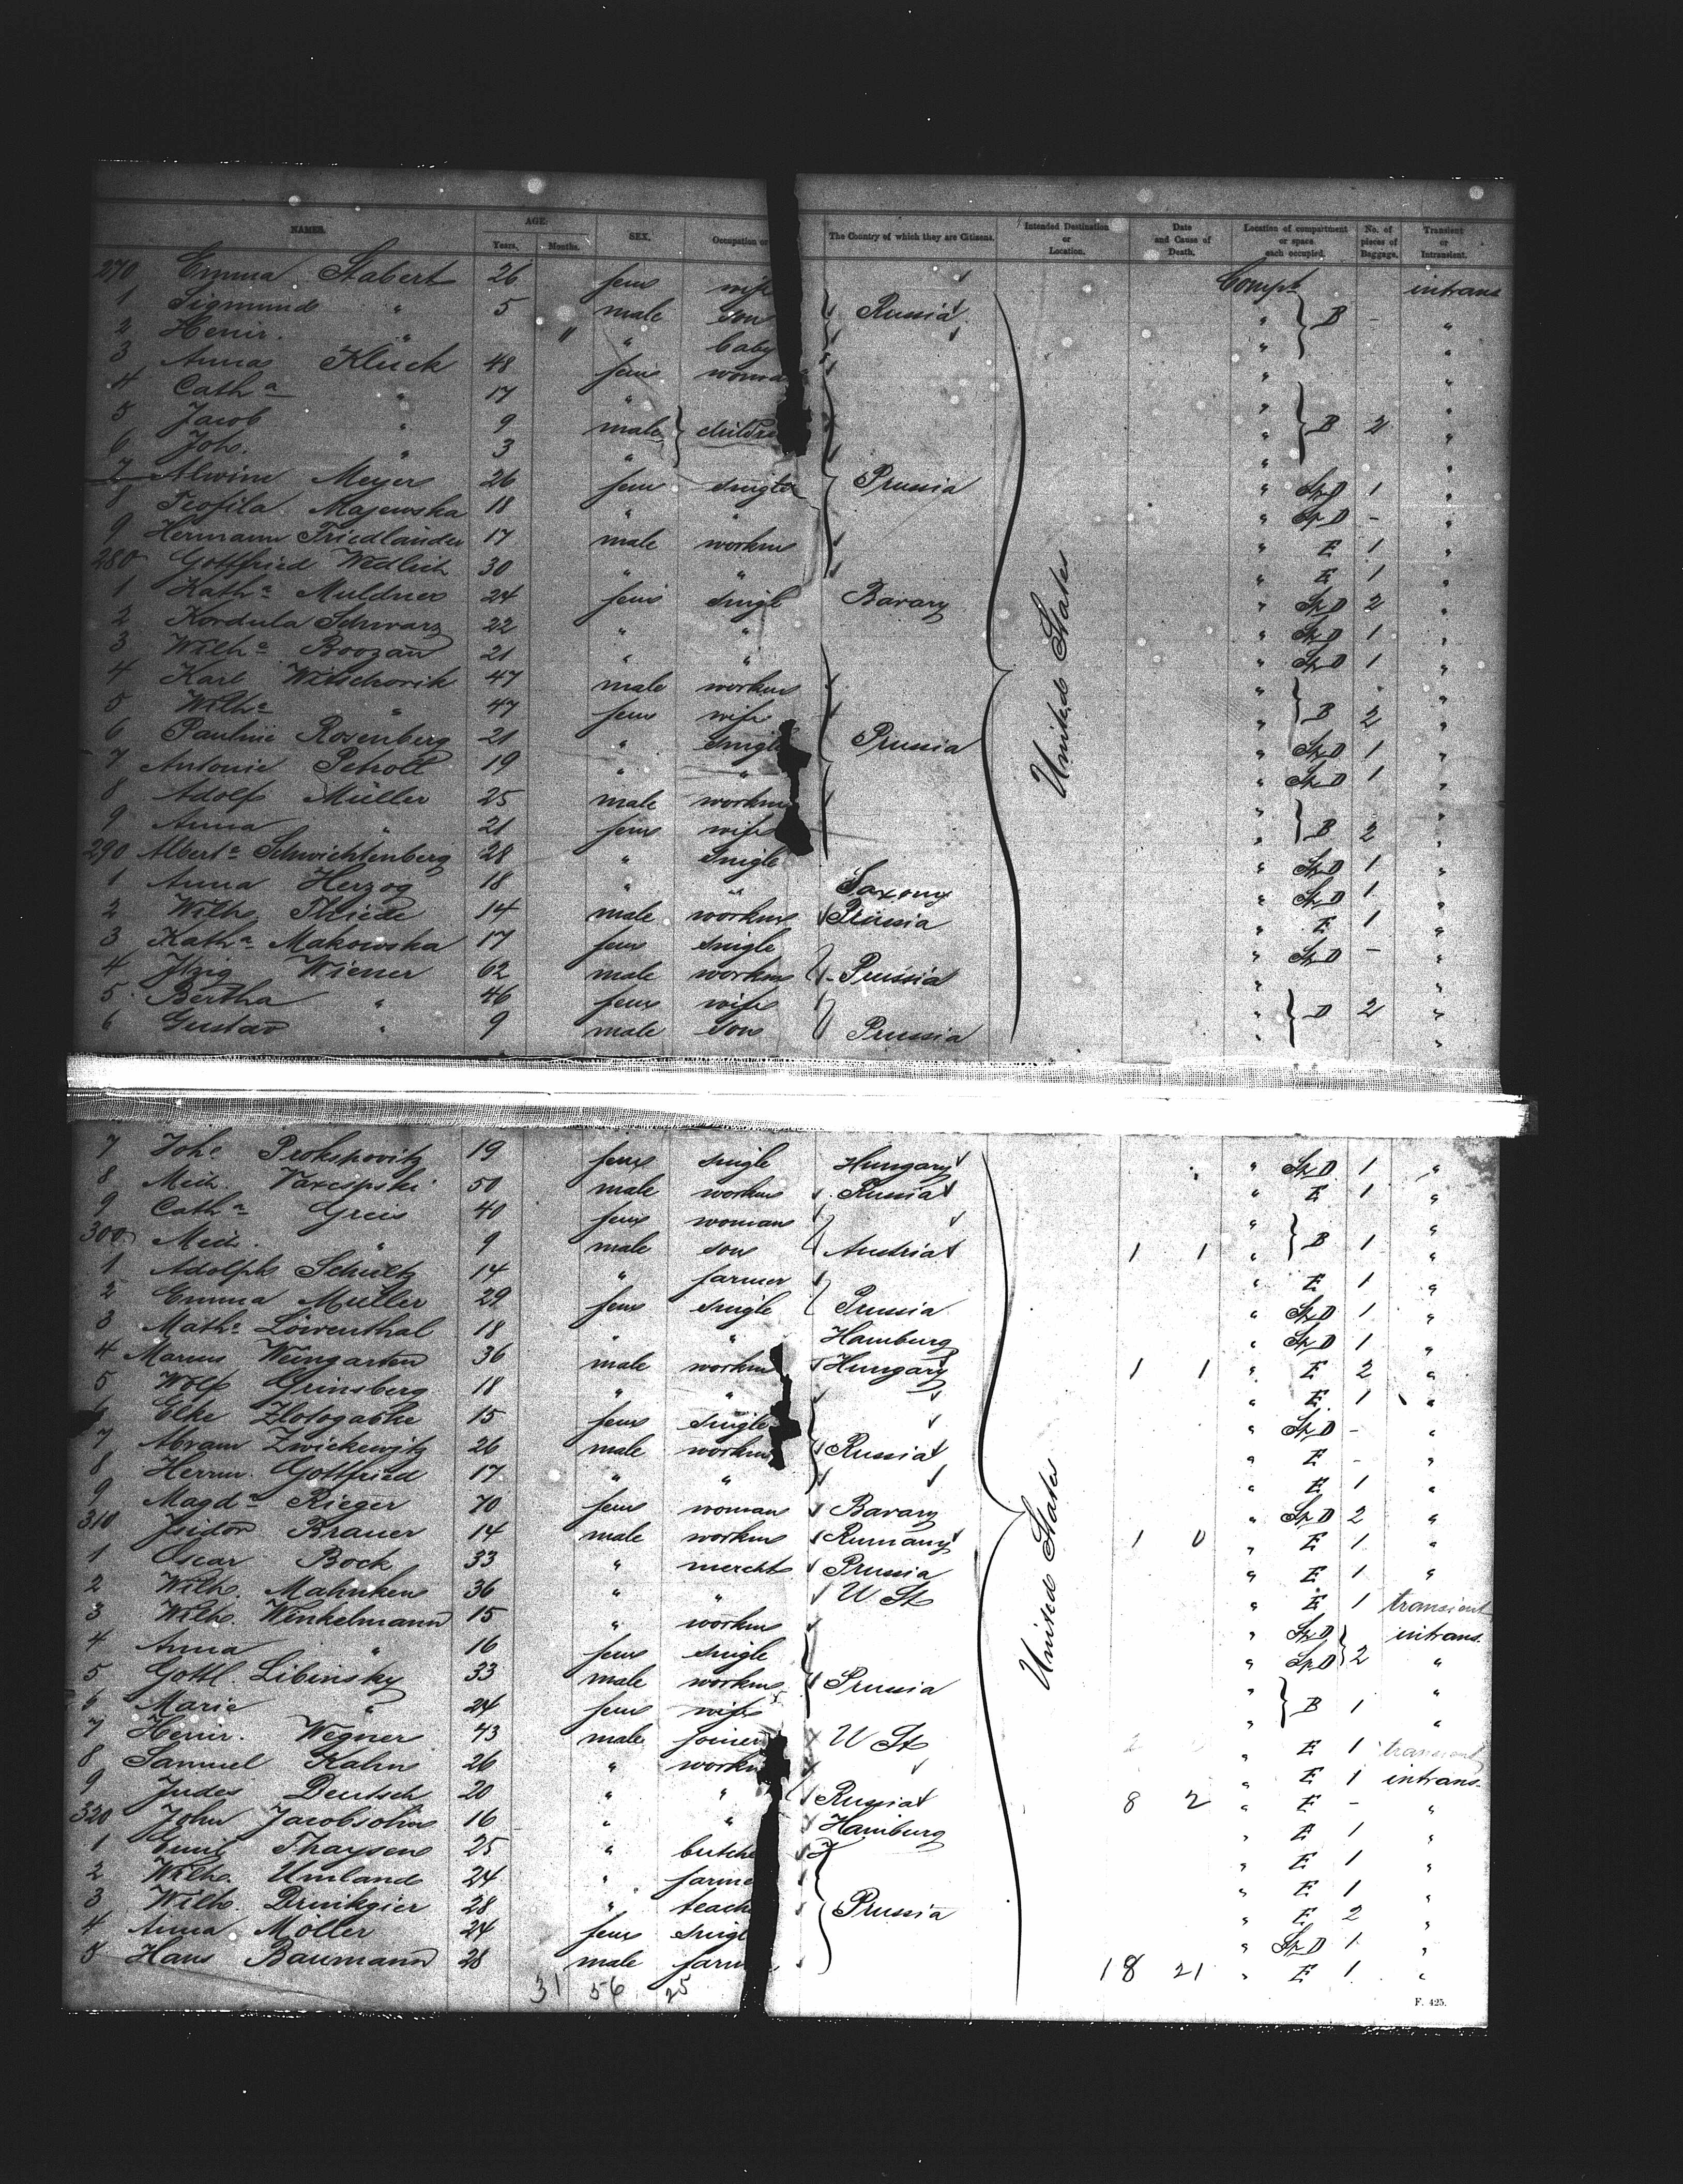 NAMES. AGE. Years. Months. SEX. Occupation or The Country of which they are Citizens. Intended Destination or Location. Date and Cause of Death. Location of compartment or space each occupied. No. of pieces of Baggage. Transient or Intransient.
270 Emma Stabert 26 fem wife Compt intrans
1 Sigmund " 5 male son Russia " B - "
2 Heinr. " 11 " baby " "
3 Anna Kluck 48 fem woman " "
4 Cath a " 17 " " "
5 Jacob " 9 male children " B 2 "
6 Joh. " 3 " " "
7 Alwine Meyer 26 fem single Prussia " St D 1 "
8 Teofila Majewska 18 " " " St D - "
9 Hermann Friedländer 17 male workm " E 1 "
280 Gottfried Wedlich 30 " " " E 1 "
1 Kath a Muldner 24 fem single Bavary " St D 2 "
2 Kordula Schwarz 22 " " " St D 1 "
3 Wilh a Boozan 21 " " " St D 1 "
4 Karl 47 male workm " "
5 Wilh a " 47 fem wife " B 2 "
6 Pauline Rosenberg 21 " single Prussia " St D 1 "
7 Antonie 19 " " " St D 1 "
8 Adolf Müller 25 male workm " "
9 Anna " 21 fem wife " B 2 "
290 Albert a Schwichtenberg 28 " single " St D 1 "
1 Anna Herzog 18 " " Saxony " St D 1 "
2 Wilh. Thiede 14 male workm Prussia " E 1 "
3 Kath a Makowska 17 fem single " St D - "
4 Itzig Wiener 62 male workm Prussia " "
5 Bertha " 46 fem wife " D 2 "
6 Gustav " 9 male son Prussia " "
7 Joh e Prokopovitz 19 fem single Hungary " St D 1 "
8 Mich. 50 male workm Russia " E 1 "
9 Cath a Greis 40 fem woman " "
300 Mich. " 9 male son Austria 1 1 " B 1 "
1 Adolph Schultz 14 " farmer " E 1 "
2 Emma Müller 29 fem single Prussia " St D 1 "
3 Math e Löwenthal 18 " " Hamburg " St D 1 "
4 Marcus Weingarten 36 male workm Hungary 1 1 " E 2 "
5 Wolf Grinsberg 18 " " " E 1 "
6 Elke 15 fem single " St D - "
7 Abram Zwickewitz 26 male workm Russia " E - "
8 Herrm. Gottfried 17 " " " E 1 "
9 Magd a Rieger 70 fem woman Bavary " St D 2 "
310 Isidor Brauer 14 male workm Rumany 1 0 " E 1 "
1 Oscar Bock 33 " mercht Prussia " E 1 "
2 Wilh. Mahnken 36 " " U St " E 1 transient
3 Wilh. Winkelmann 15 " workm " St D intrans.
4 Anna " 16 fem single " St D 2 "
5 Gottl. Libinsky 33 male workm Prussia " "
6 Marie " 24 fem wife " B 1 "
7 Heinr. Wegner 43 male joiner U St " E 1 transient
8 Samuel Kahn 26 " workm " E 1 intrans.
9 Judes Deutsch 20 " " Russia 8 2 " E - "
320 John Jacobsohn 16 " " Hamburg " E 1 "
1 Emil Thaysen 25 " butche " E 1 "
2 Wilh. Umland 24 " farme " E 1 "
3 Wilh. Drinkgier 28 " teach Prussia " E 2 "
4 Anna Moller 24 fem singl " St D 1 "
5 Hans Baumann 28 male farm 18 21 " E 1 "
31 56 25
United States
United States
F. 425.